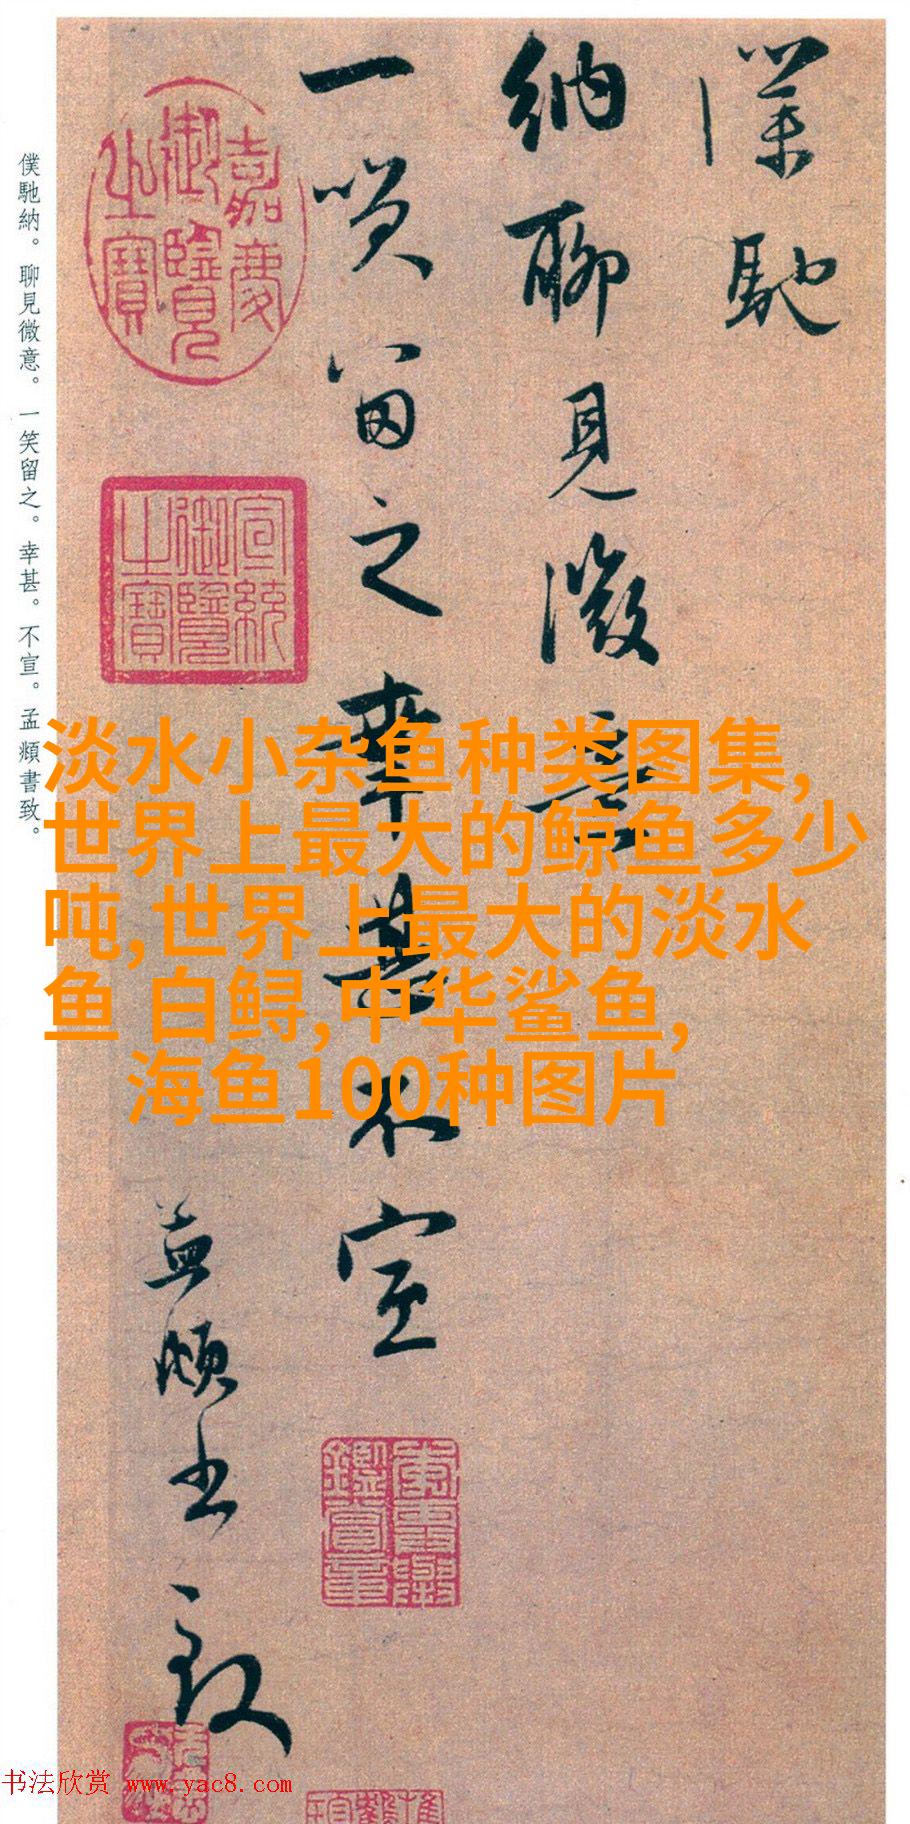 僕馳
納聊見微意
一笑留之幸甚不宣
孟頫書致
僕馳納。聊見微意。一笑留之。幸甚。不宣。孟頫書致。
嘉慶
御覽
之寶
宣統
御覽
之寶
淡水小杂鱼种类图集,
世界上最大的鲸鱼多少
吨,世界上最大的淡水
鱼 白鲟,中华鲨鱼,
海鱼100种图片
书法欣赏 www.yac8.com